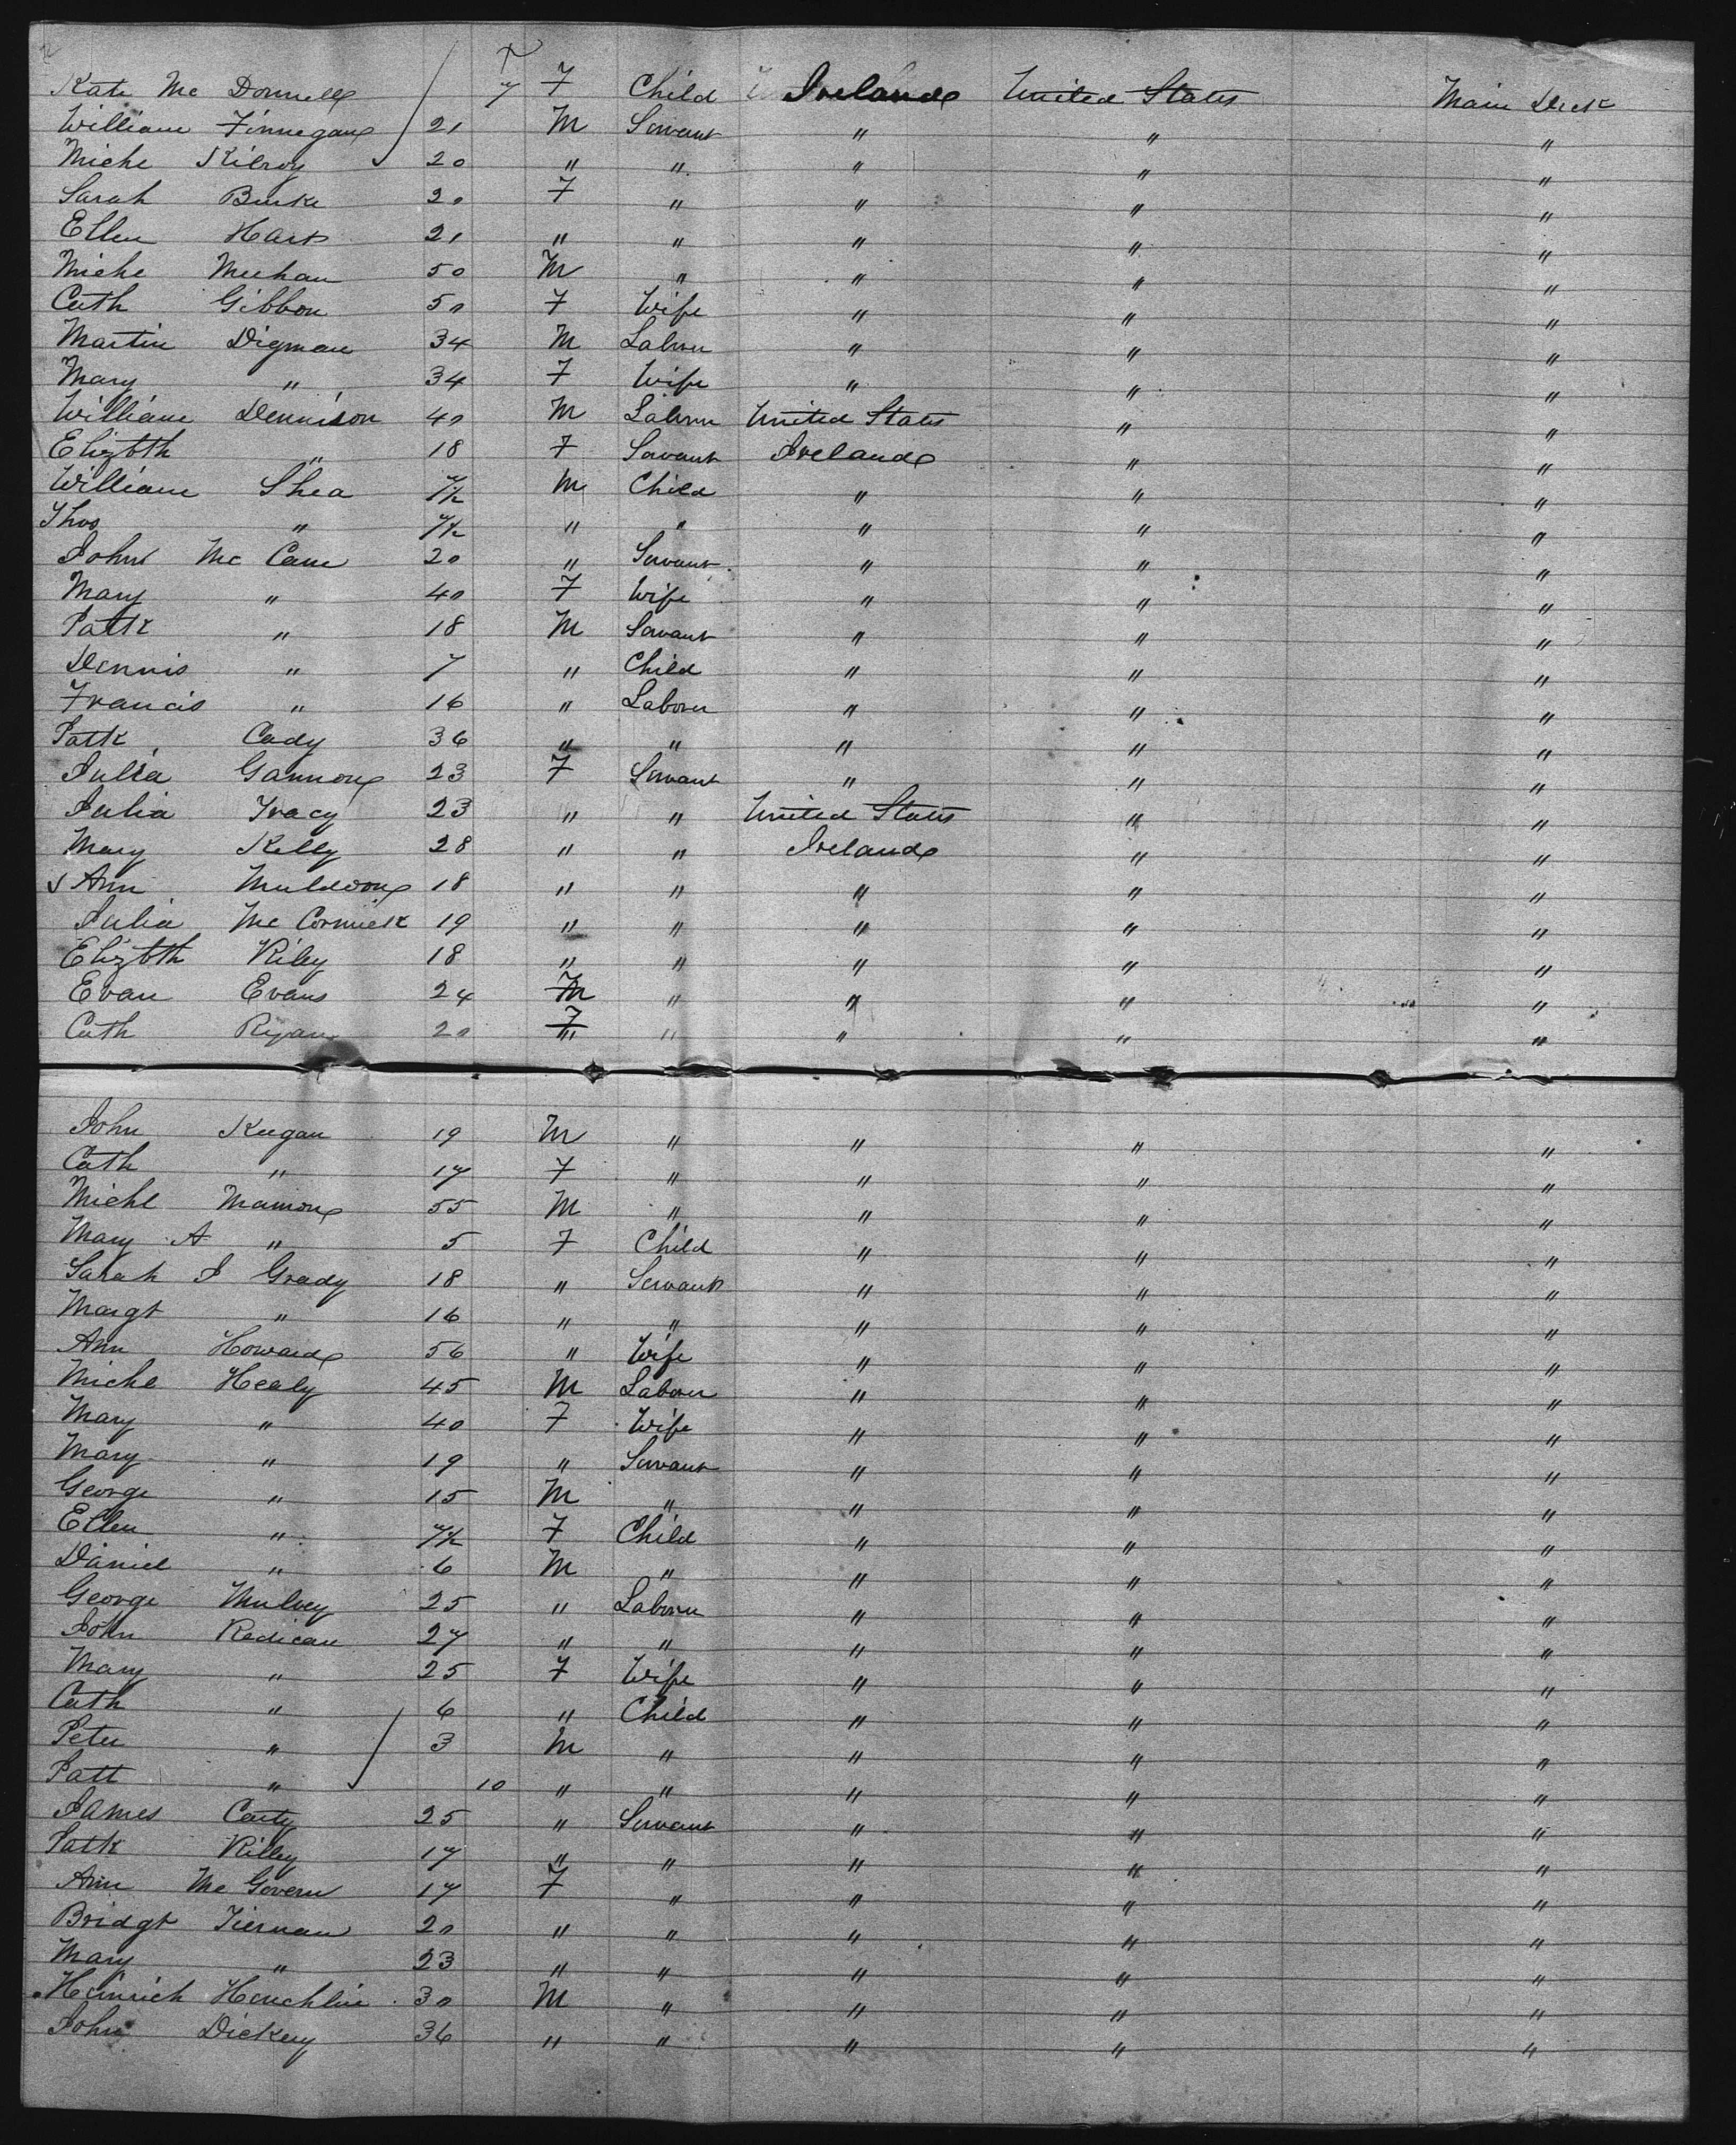 Kate Mc Donnell 7 F Child Ireland United States Main Deck
William Finnegan 21 M Servant " " "
Michl Kilroy 20 " " " " "
Sarah Burke 20 F " " " "
Ellen Hart 21 " " " " "
Michl Meehan 50 M " " " "
Cath Gibbon 50 F Wife " " "
Martin Digman 34 M Laborer " " "
Mary " 34 F Wife " " "
William Dennison 40 M Laborer United States " "
Elizbth " 18 F Servant Ireland " "
William Shea 7½ M Child " " "
Thos " 7½ " " " " "
John Mc Cann 20 " Servant " " "
Mary " 40 F Wife " " "
Patk " 18 M Servant " " "
Dennis " 7 " Child " " "
Francis " 16 " Laborer " " "
Patk Cady 36 " " " " "
Julia Gannon 23 F Servant " " "
Julia Tracy 23 " " United States " "
Mary Kelly 28 " " Ireland " "
Ann Muldoon 18 " " " " "
Julia Mc Cormick 19 " " " " "
Elizbth Riley 18 " " " " "
Evan Evans 24 M " " " "
Cath Ryan 20 F " " " "
John Keegan 19 M " " " "
Cath " 17 F " " " "
Michl Mamon 55 M " " " "
Mary A " 5 F Child " " "
Sarah J Grady 18 " Servant " " "
Margt " 16 " " " " "
Ann Howard 56 " Wife " " "
Michl Healy 45 M Laborer " " "
Mary " 40 F Wife " " "
Mary " 19 " Servant " " "
George " 15 M " " " "
Ellen " 7½ F Child " " "
Daniel " 6 M " " " "
George Mulvey 25 " Laborer " " "
John Redican 27 " " " " "
Mary " 25 F Wife " " "
Cath " 6 " Child " " "
Peter " 3 M " " " "
Patt " 10 " " " " "
James Carty 25 " Servant " " "
Patk Rilley 17 " " " " "
Ann Mc Govern 17 F " " " "
Bridgt Tiernan 20 " " " " "
Mary " 23 " " " " "
Heinrich Henchlin 30 M " " " "
John Dickey 36 " " " " "